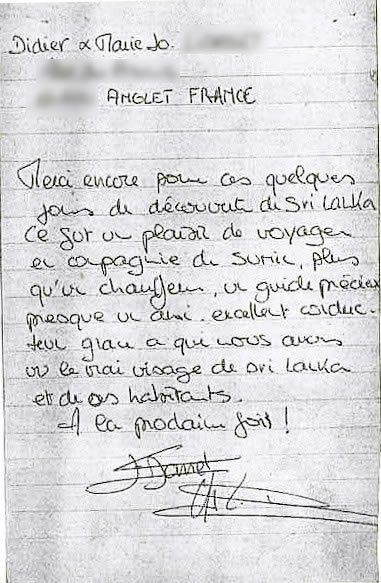 Didier & Marie Jo.
ANGLET FRANCE
Merci encore pour ces quelques
jours de découverte de Sri Lanka
Ce fut un plaisir de voyager
en compagnie de Sunil, plus
qu'un chauffeur, un guide précieux
presque un ami. excellent conduc-
teur grace a qui nous avons
vu le vrai visage de Sri Lanka
et de ses habitants.
A la prochaine fois !